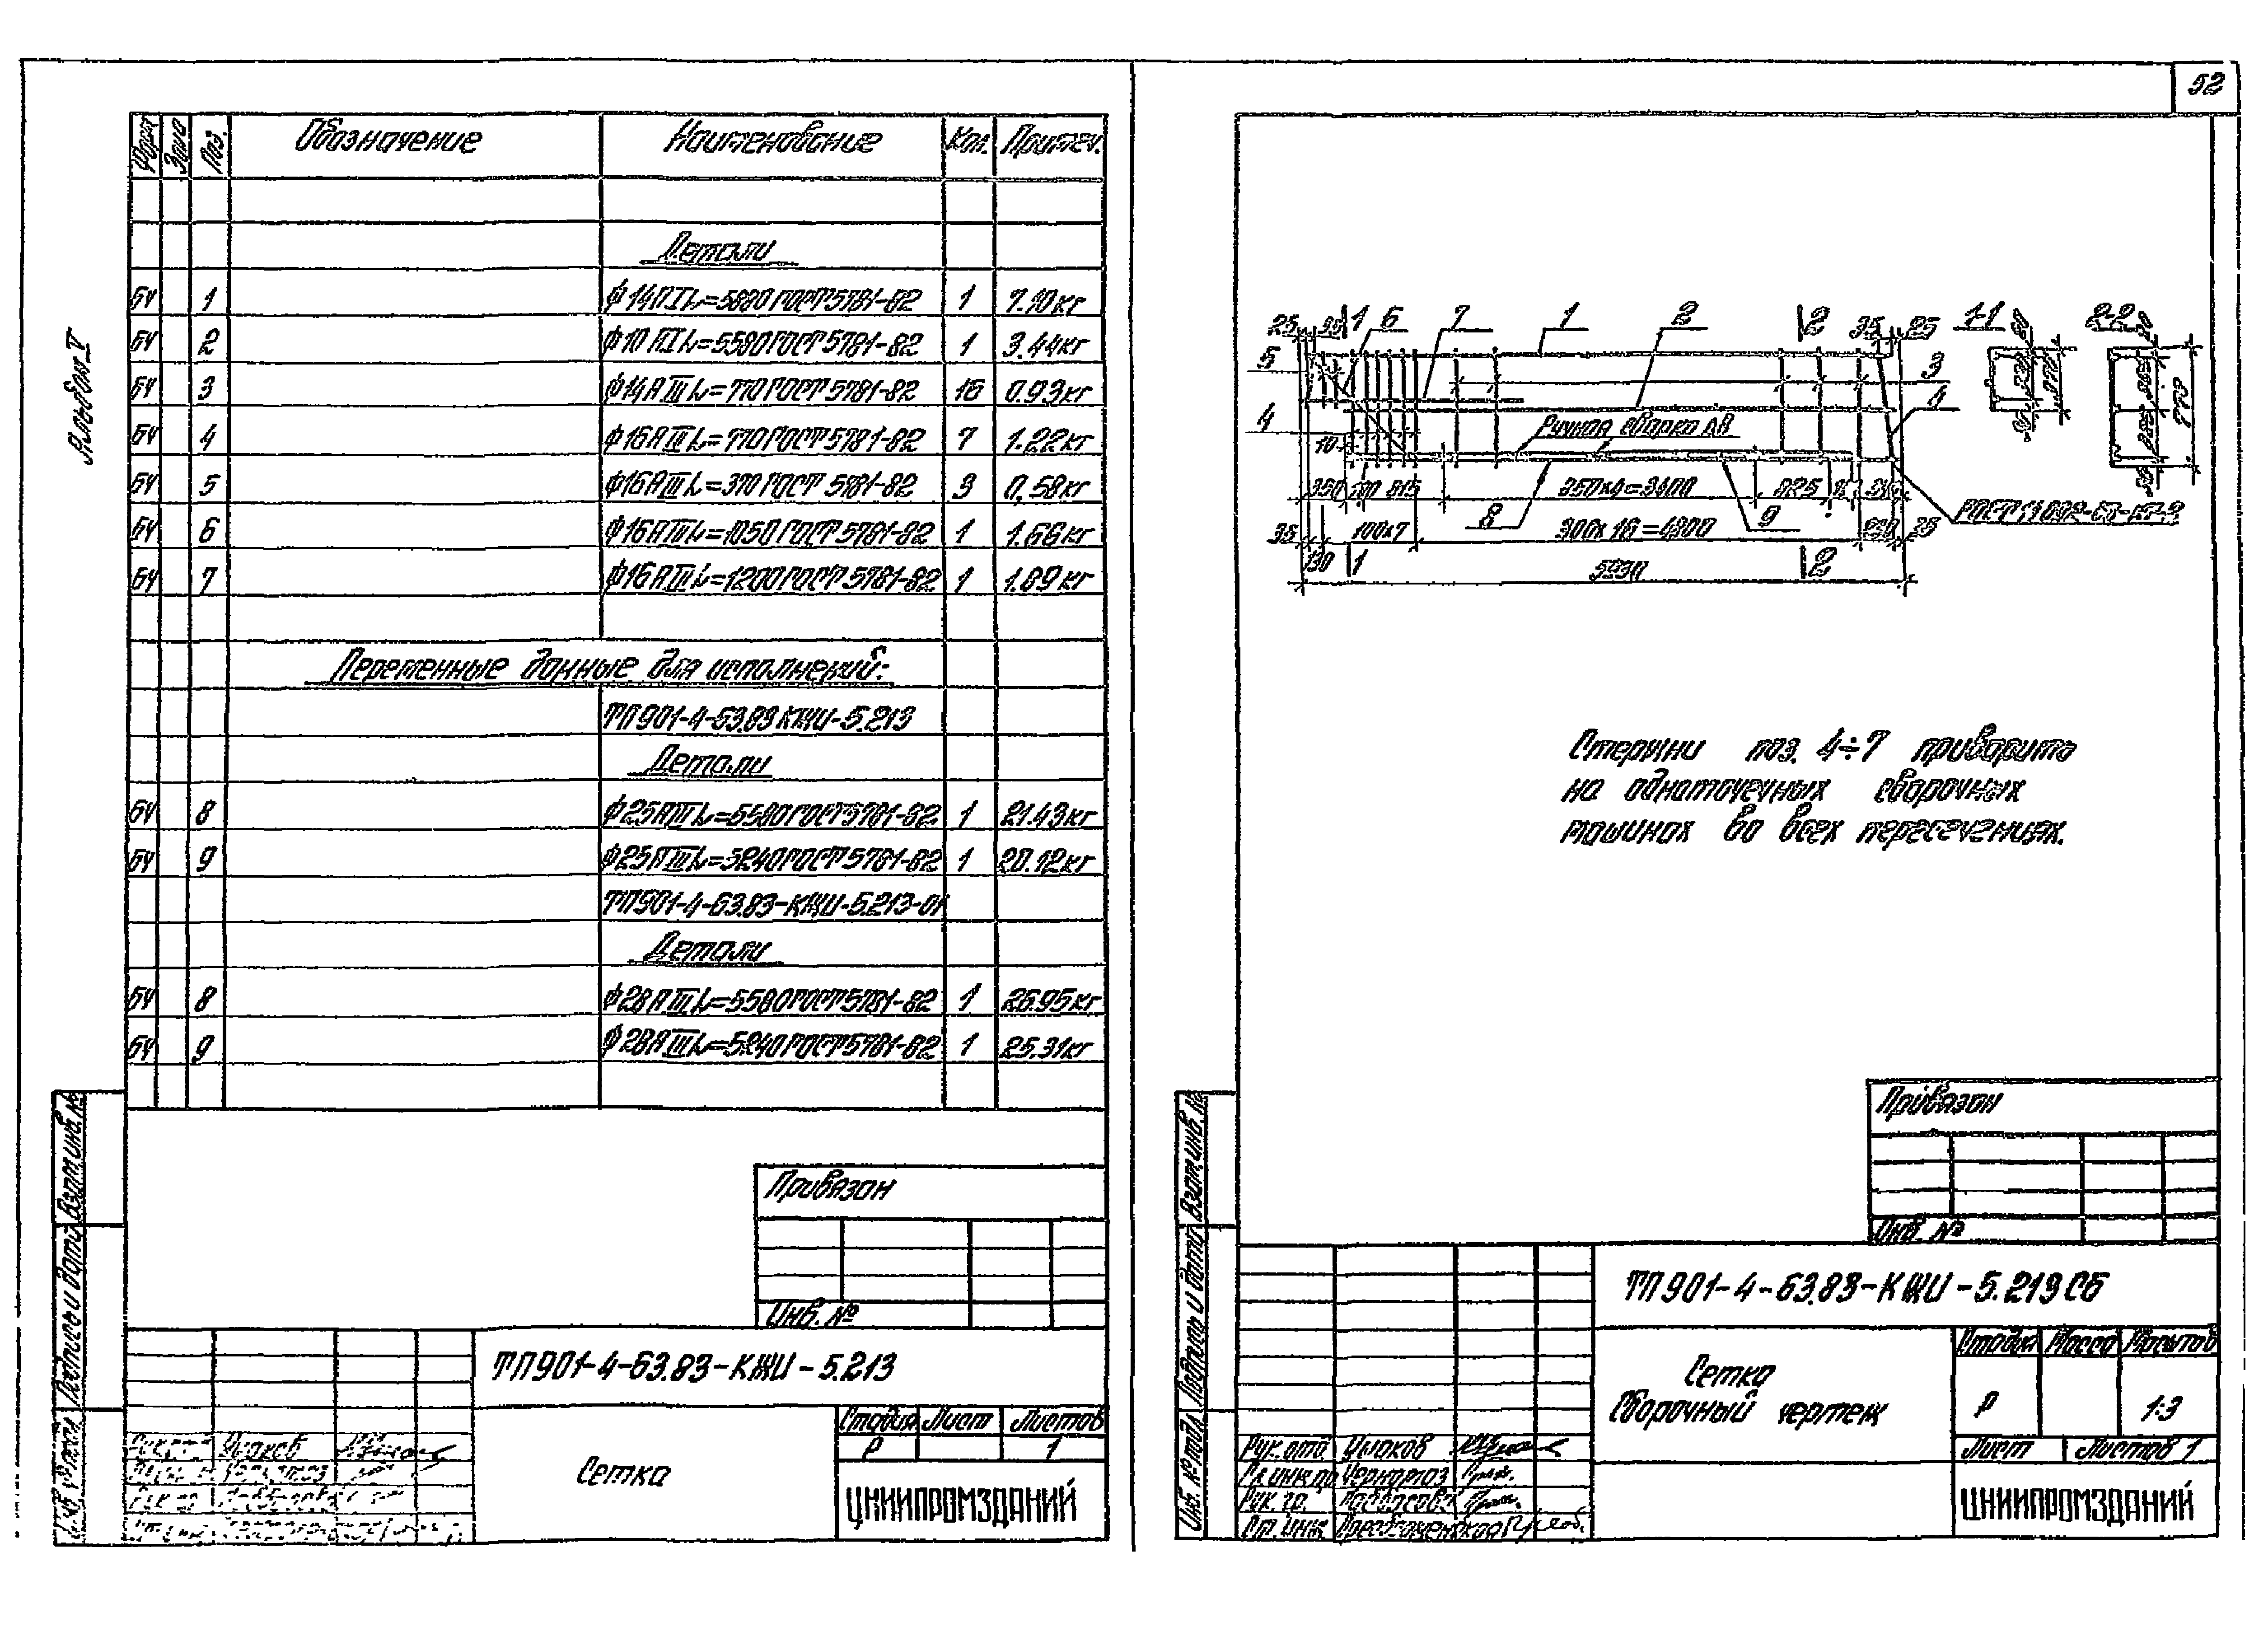 52
Альбом V
Форм. Зона Поз. Обозначение Наименование Кол. Примеч.
Детали
БЧ 1 ϕ14АI L=5880 ГОСТ 5781-82 1 7.10кг
БЧ 2 ϕ10АI L=5580 ГОСТ 5781-82 1 3.44кг
БЧ 3 ϕ14АIII L=770 ГОСТ 5781-82 16 0.93кг
БЧ 4 ϕ16АIII L=770 ГОСТ 5781-82 7 1.22кг
БЧ 5 ϕ16АIII L=370 ГОСТ 5781-82 3 0.58кг
БЧ 6 ϕ16АIII L=1050 ГОСТ 5781-82 1 1.66кг
БЧ 7 ϕ16АIII L=1200 ГОСТ 5781-82 1 1.89кг
Переменные данные для исполнений:
ТП901-4-63.83 КЖИ-5.213
Детали
БЧ 8 ϕ25АIII L=5580 ГОСТ 5781-82 1 21.43кг
БЧ 9 ϕ25АIII L=5240 ГОСТ 5781-82 1 20.12кг
ТП901-4-63.83-КЖИ-5.213-01
Детали
БЧ 8 ϕ28АIII L=5580 ГОСТ 5781-82 1 26.95кг
БЧ 9 ϕ28АIII L=5240 ГОСТ 5781-82 1 25.31кг
Привязан
Инв. №
ТП901-4-63.83-КЖИ-5.213
Сетка
Стадия Лист Листов
Р 1
ЦНИИПРОМЗДАНИЙ
Подпись и дата Взам.инв.№
25 35 1 6 7 1 2 2 35 25 1-1 2-2
5 3
4 4
Ручная сварка дв.
10
350 100 815 850х4=3400 825
8 9
35 100х7 300х16=4800
130 1 5930 2
Стержни поз. 4÷7 приварить
на одноточечных сварочных
машинах во всех пересечениях.
Привязан
Инв. №
ТП901-4-63.83-КЖИ-5.213СБ
Сетка
Сборочный чертеж
Стадия Масса Масштаб
Р 1:3
Лист Листов 1
ЦНИИПРОМЗДАНИЙ
Рук.отд.
Гл.инж.пр.
Рук.гр.
Ст.инж. Преображенская
Инв.№подл. Подпись и дата Взам.инв.№